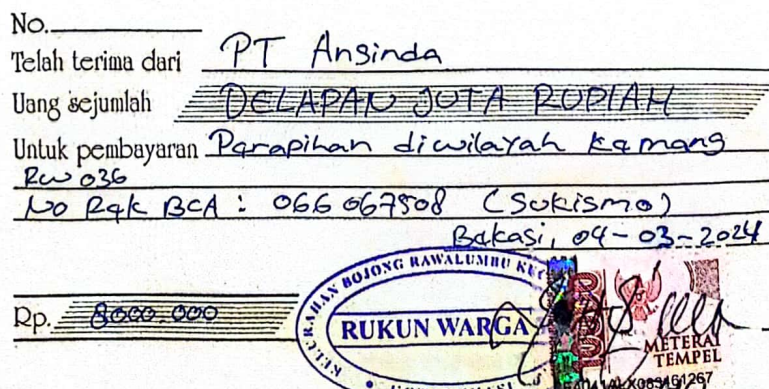 No.
Telah terima dari PT Ansinda
Uang sejumlah DELAPAN JUTA RUPIAH
Untuk pembayaran Parapihan diwilayah kamang
RW 036
No Rek BCA : 066 067508 (Sukismo)
Bekasi, 04-03-2024
KELURAHAN BOJONG RAWALUMBU
Rp. 8000.000
RUKUN WARGA
METERAI
TEMPEL